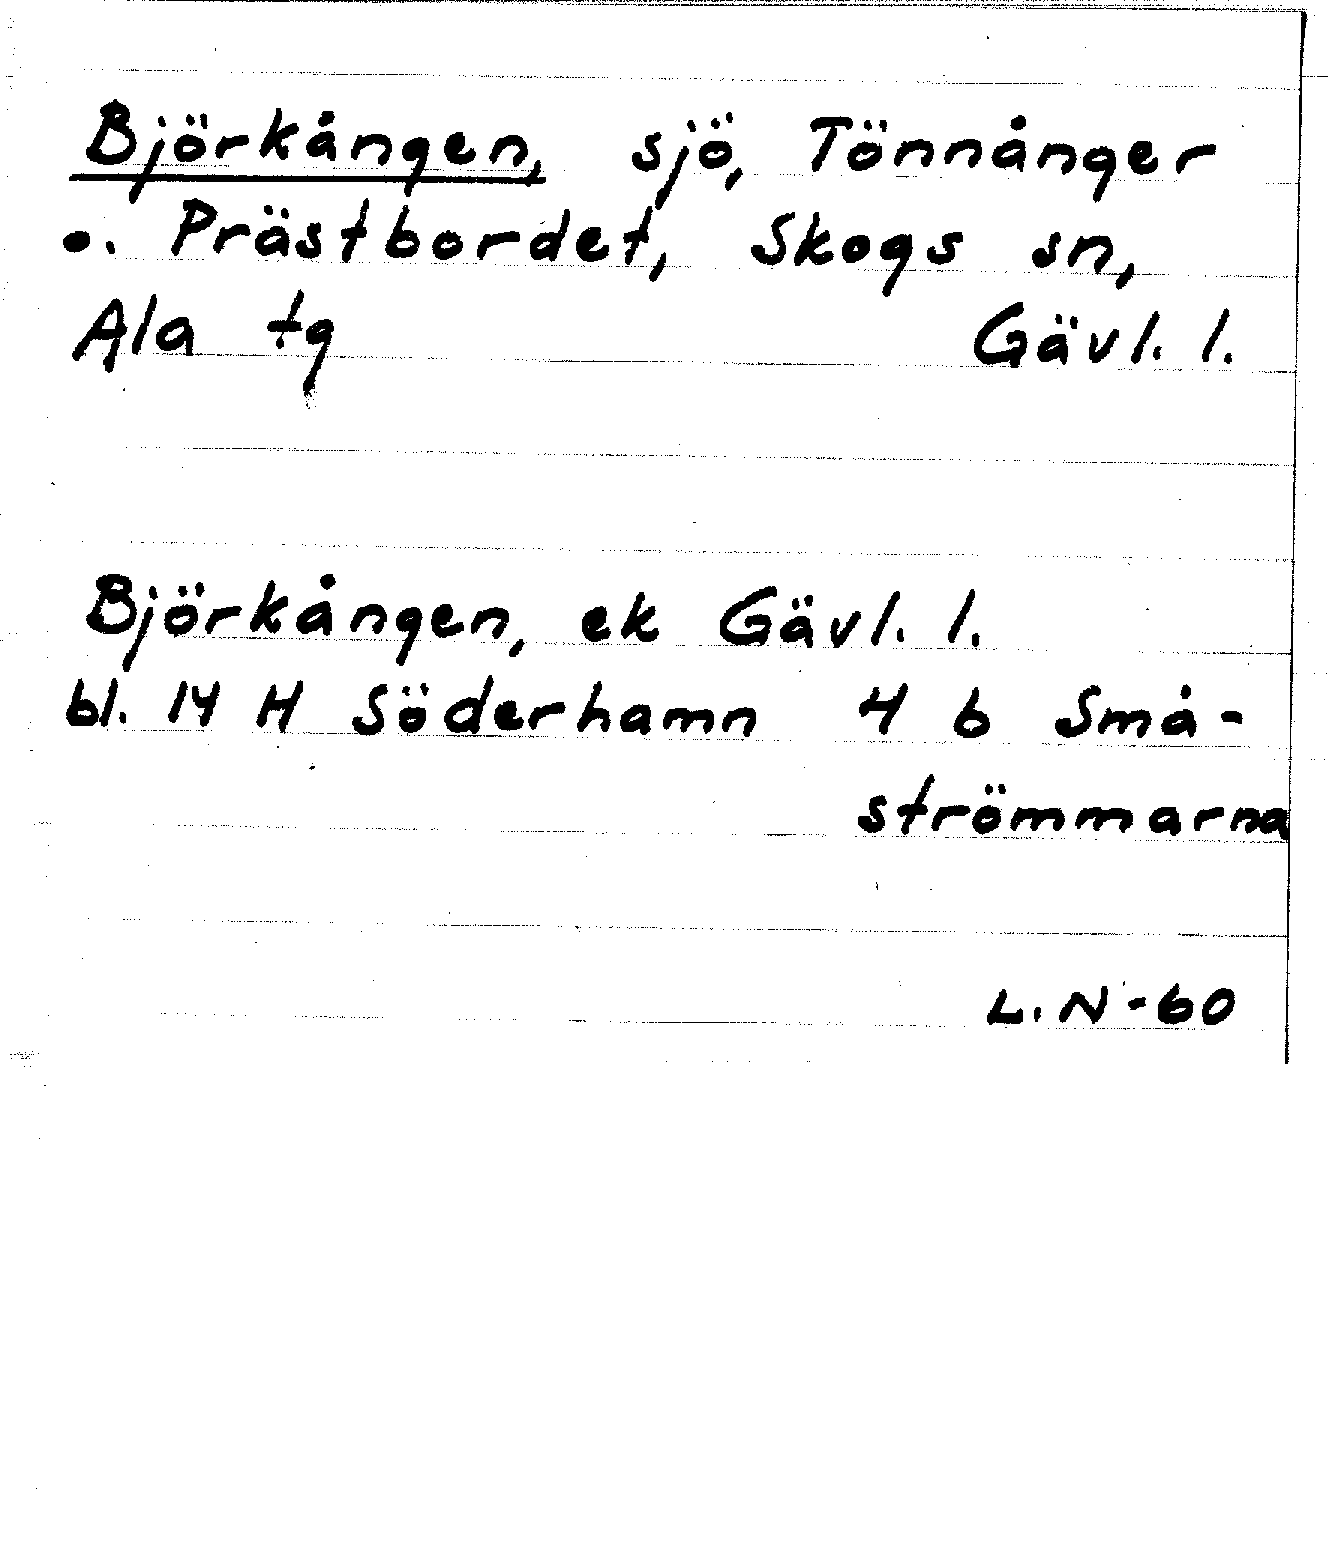 Björkången, sjö, Tönnånger
o. Prästbordet, Skogs sn,
Ala tg Gävl. l.
Björkången, ek Gävl. l.
bl. 14 H Söderhamn 4 b Små-
strömmarna
L. N -60